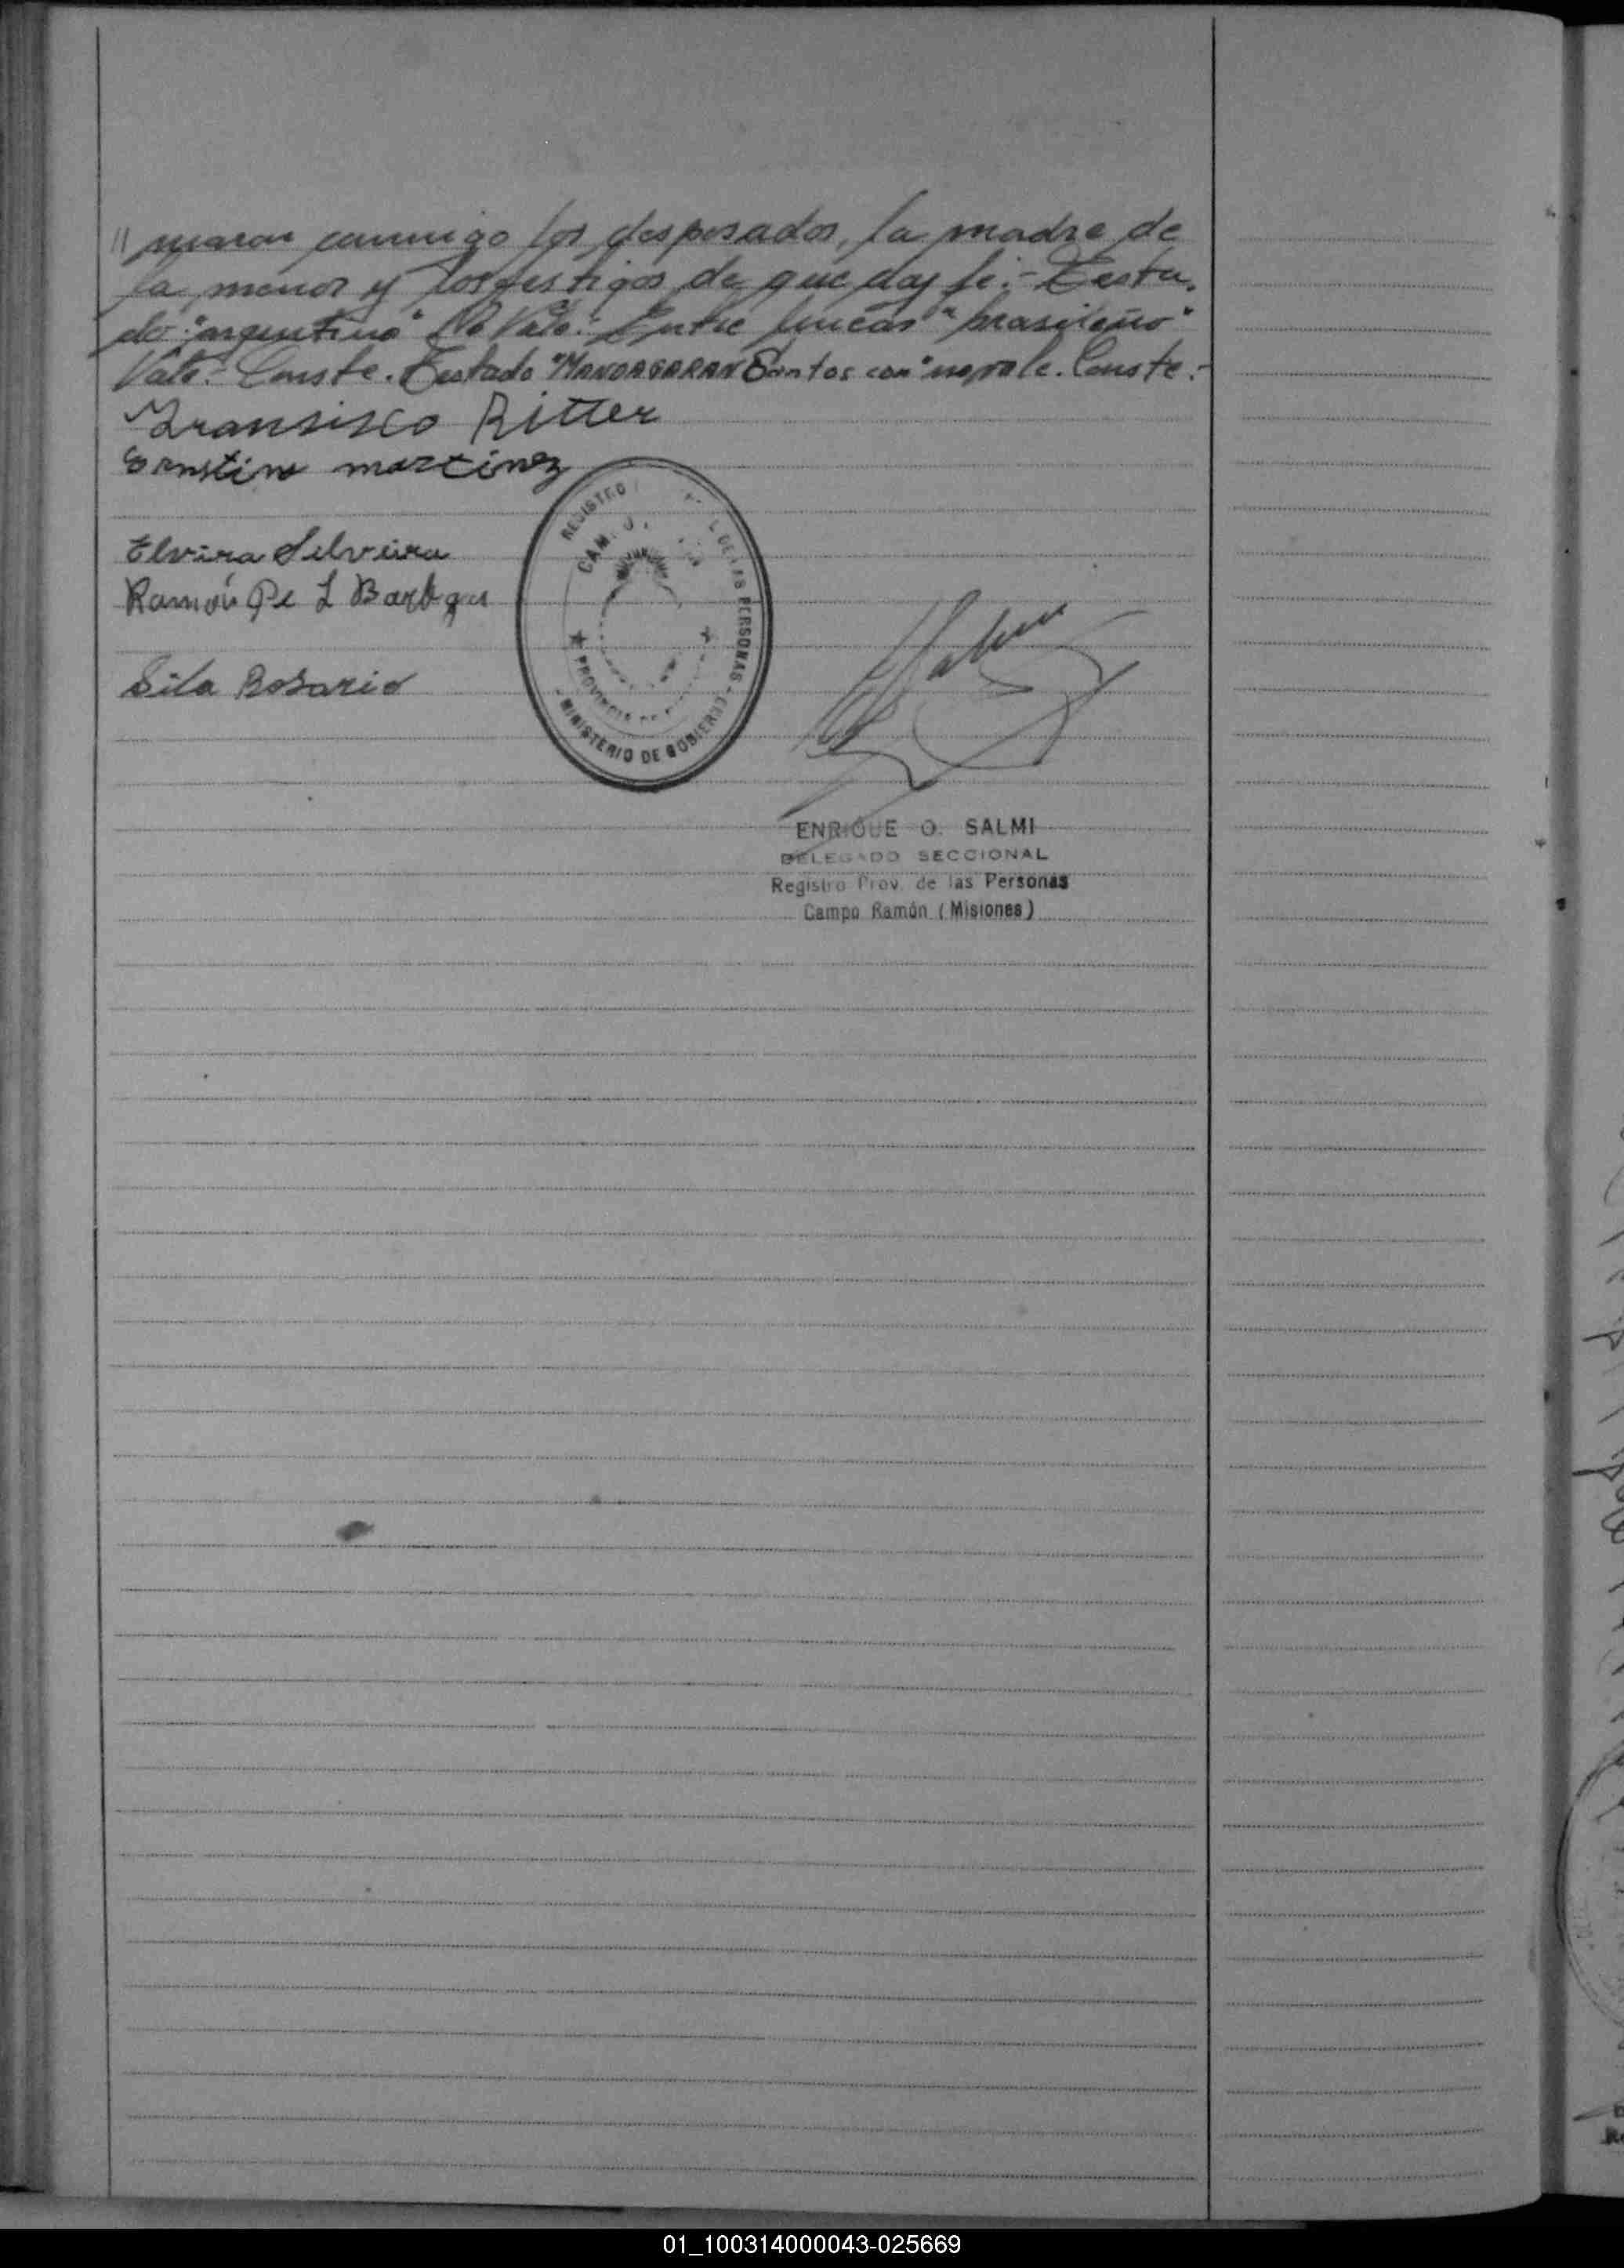 // maron conmigo los desposados, la madre de
la menor y los testigos de que doy fe.- Testa-
do: "argentino" No Vale.- Entre lineas "brasileño"
Vale.- Conste. Testado "MANDAGARAN Santos con" no vale. Conste.-
Fransisco Ritter
Ernstina martinez
Elvira Silveira
Ramón De L
Sila Rosario
REGISTRO DE LAS PERSONAS - MINISTERIO DE GOBIERNO -
PROVINCIA DE
ENRIQUE O. SALMI
DELEGADO SECCIONAL
Registro Prov. de las Personas
Campo Ramón (Misiones)
01_100314000043-025669